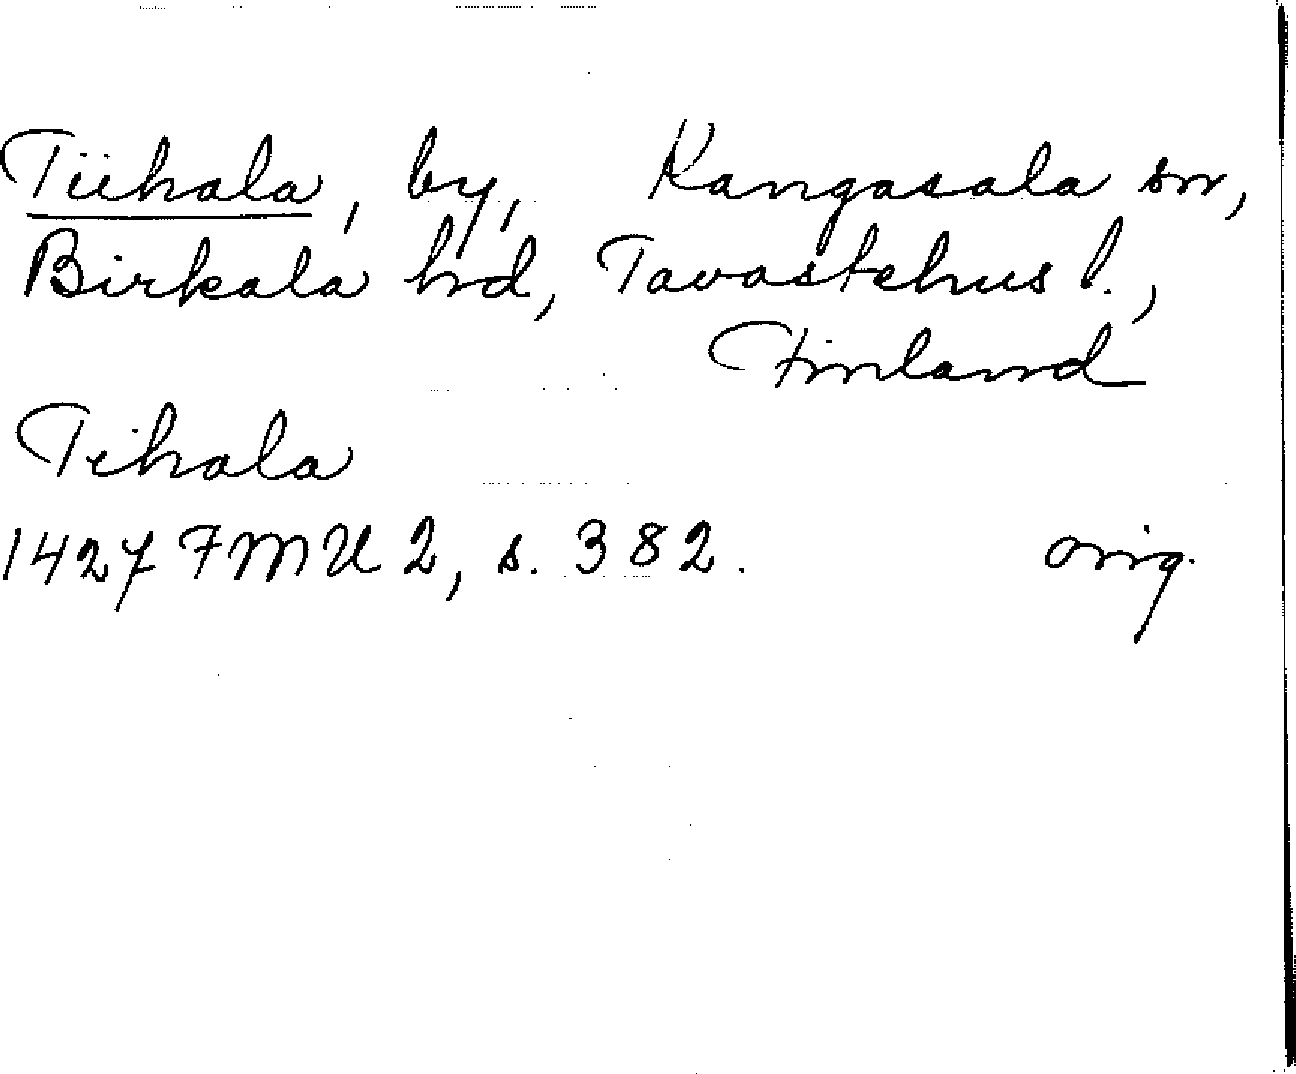 Tiihala, by, Kangasala sn,
Birkala hd, Tavastehus l.,
Finland
Tihala
1427 FMU 2, s. 382. orig.